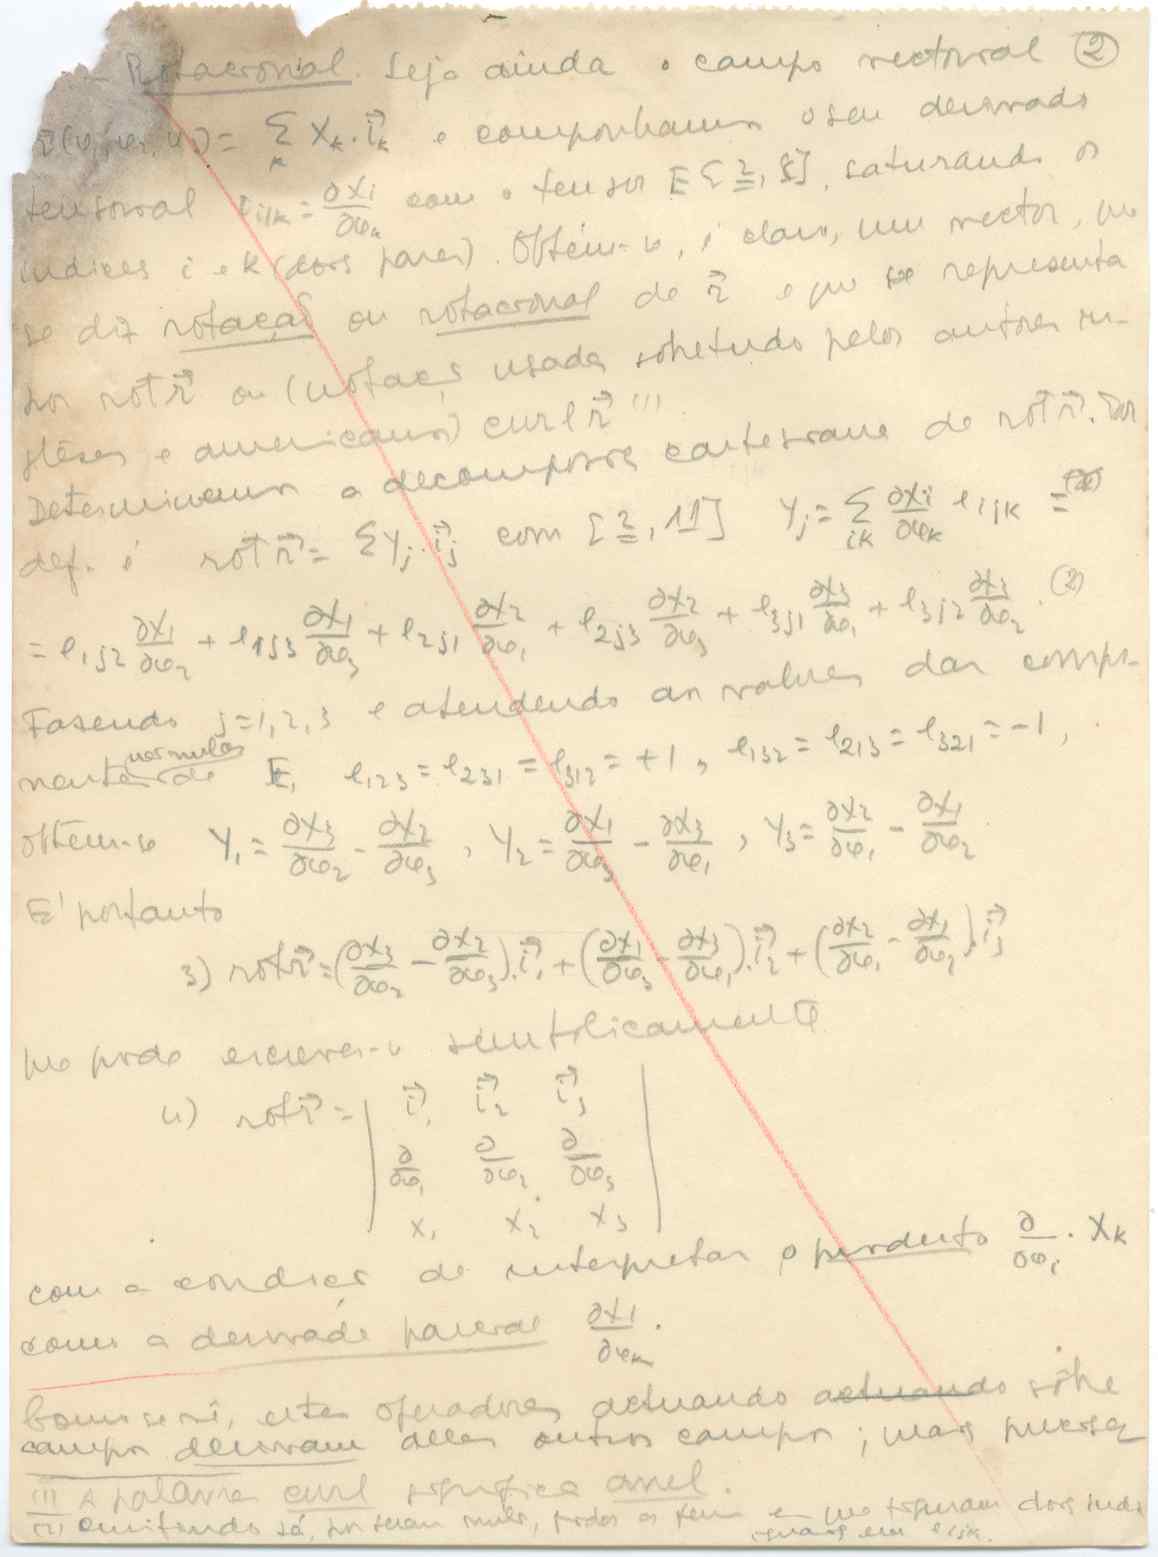 - Rotacional. Seja ainda o campo vectorial ②
r⃗(φ₁,φ₂,φ₃) = Σₖ Xₖ.i⃗ₖ e componhamos o seu derivado
tensorial = ∂Xᵢ/∂φₖ com o tensor E [2, 8], saturando os
índices i e k (dois pares). Obtém-se, é claro, um vector, que
se diz rotação ou rotacional de r⃗ e que se representa
por rot r⃗ ou (notação usada sobretudo pelos autores in-
gleses e americanos) curl r⃗ ⁽¹⁾.
Determinemos a decomposição cartesiana de rot r⃗. Por
def. é rot r⃗ = ΣYⱼ.i⃗ⱼ com [2, 11] Yⱼ = Σᵢₖ ∂Xᵢ/∂φₖ eᵢⱼₖ =
= e₁ⱼ₂ ∂X₁/∂φ₂ + e₁ⱼ₃ ∂X₁/∂φ₃ + e₂ⱼ₁ ∂X₂/∂φ₁ + e₂ⱼ₃ ∂X₂/∂φ₃ + e₃ⱼ₁ ∂X₃/∂φ₁ + e₃ⱼ₂ ∂X₃/∂φ₂. ⁽²⁾
Fazendo j=1,2,3 e atendendo aos valores das compo-
nentes não nulas de E, e₁₂₃ = e₂₃₁ = e₃₁₂ = +1, e₁₃₂ = e₂₁₃ = e₃₂₁ = -1,
obtém-se Y₁ = ∂X₃/∂φ₂ - ∂X₂/∂φ₃, Y₂ = ∂X₁/∂φ₃ - ∂X₃/∂φ₁, Y₃ = ∂X₂/∂φ₁ - ∂X₁/∂φ₂
E' portanto
3) rot r⃗ = (∂X₃/∂φ₂ - ∂X₂/∂φ₃).i⃗₁ + (∂X₁/∂φ₃ - ∂X₃/∂φ₁).i⃗₂ + (∂X₂/∂φ₁ - ∂X₁/∂φ₂).i⃗₃
que pode escrever-se simbolicamente
4) rot r⃗ = | i⃗₁ i⃗₂ i⃗₃ |
∂/∂φ₁ ∂/∂φ₂ ∂/∂φ₃
X₁ X₂ X₃
com a condição de interpretar o producto ∂/∂φᵢ . Xₖ
como a derivada parcial ∂Xᵢ/∂φₖ.
Como se vê, estes operadores actuando actuando sôbre
campos derivam deles outros campos; mais precisa
(1) A palavra curl significa anel.
(2) omitindo já, por serem nulos, todos os termos em que figuram dois indi
iguais em eᵢⱼₖ.